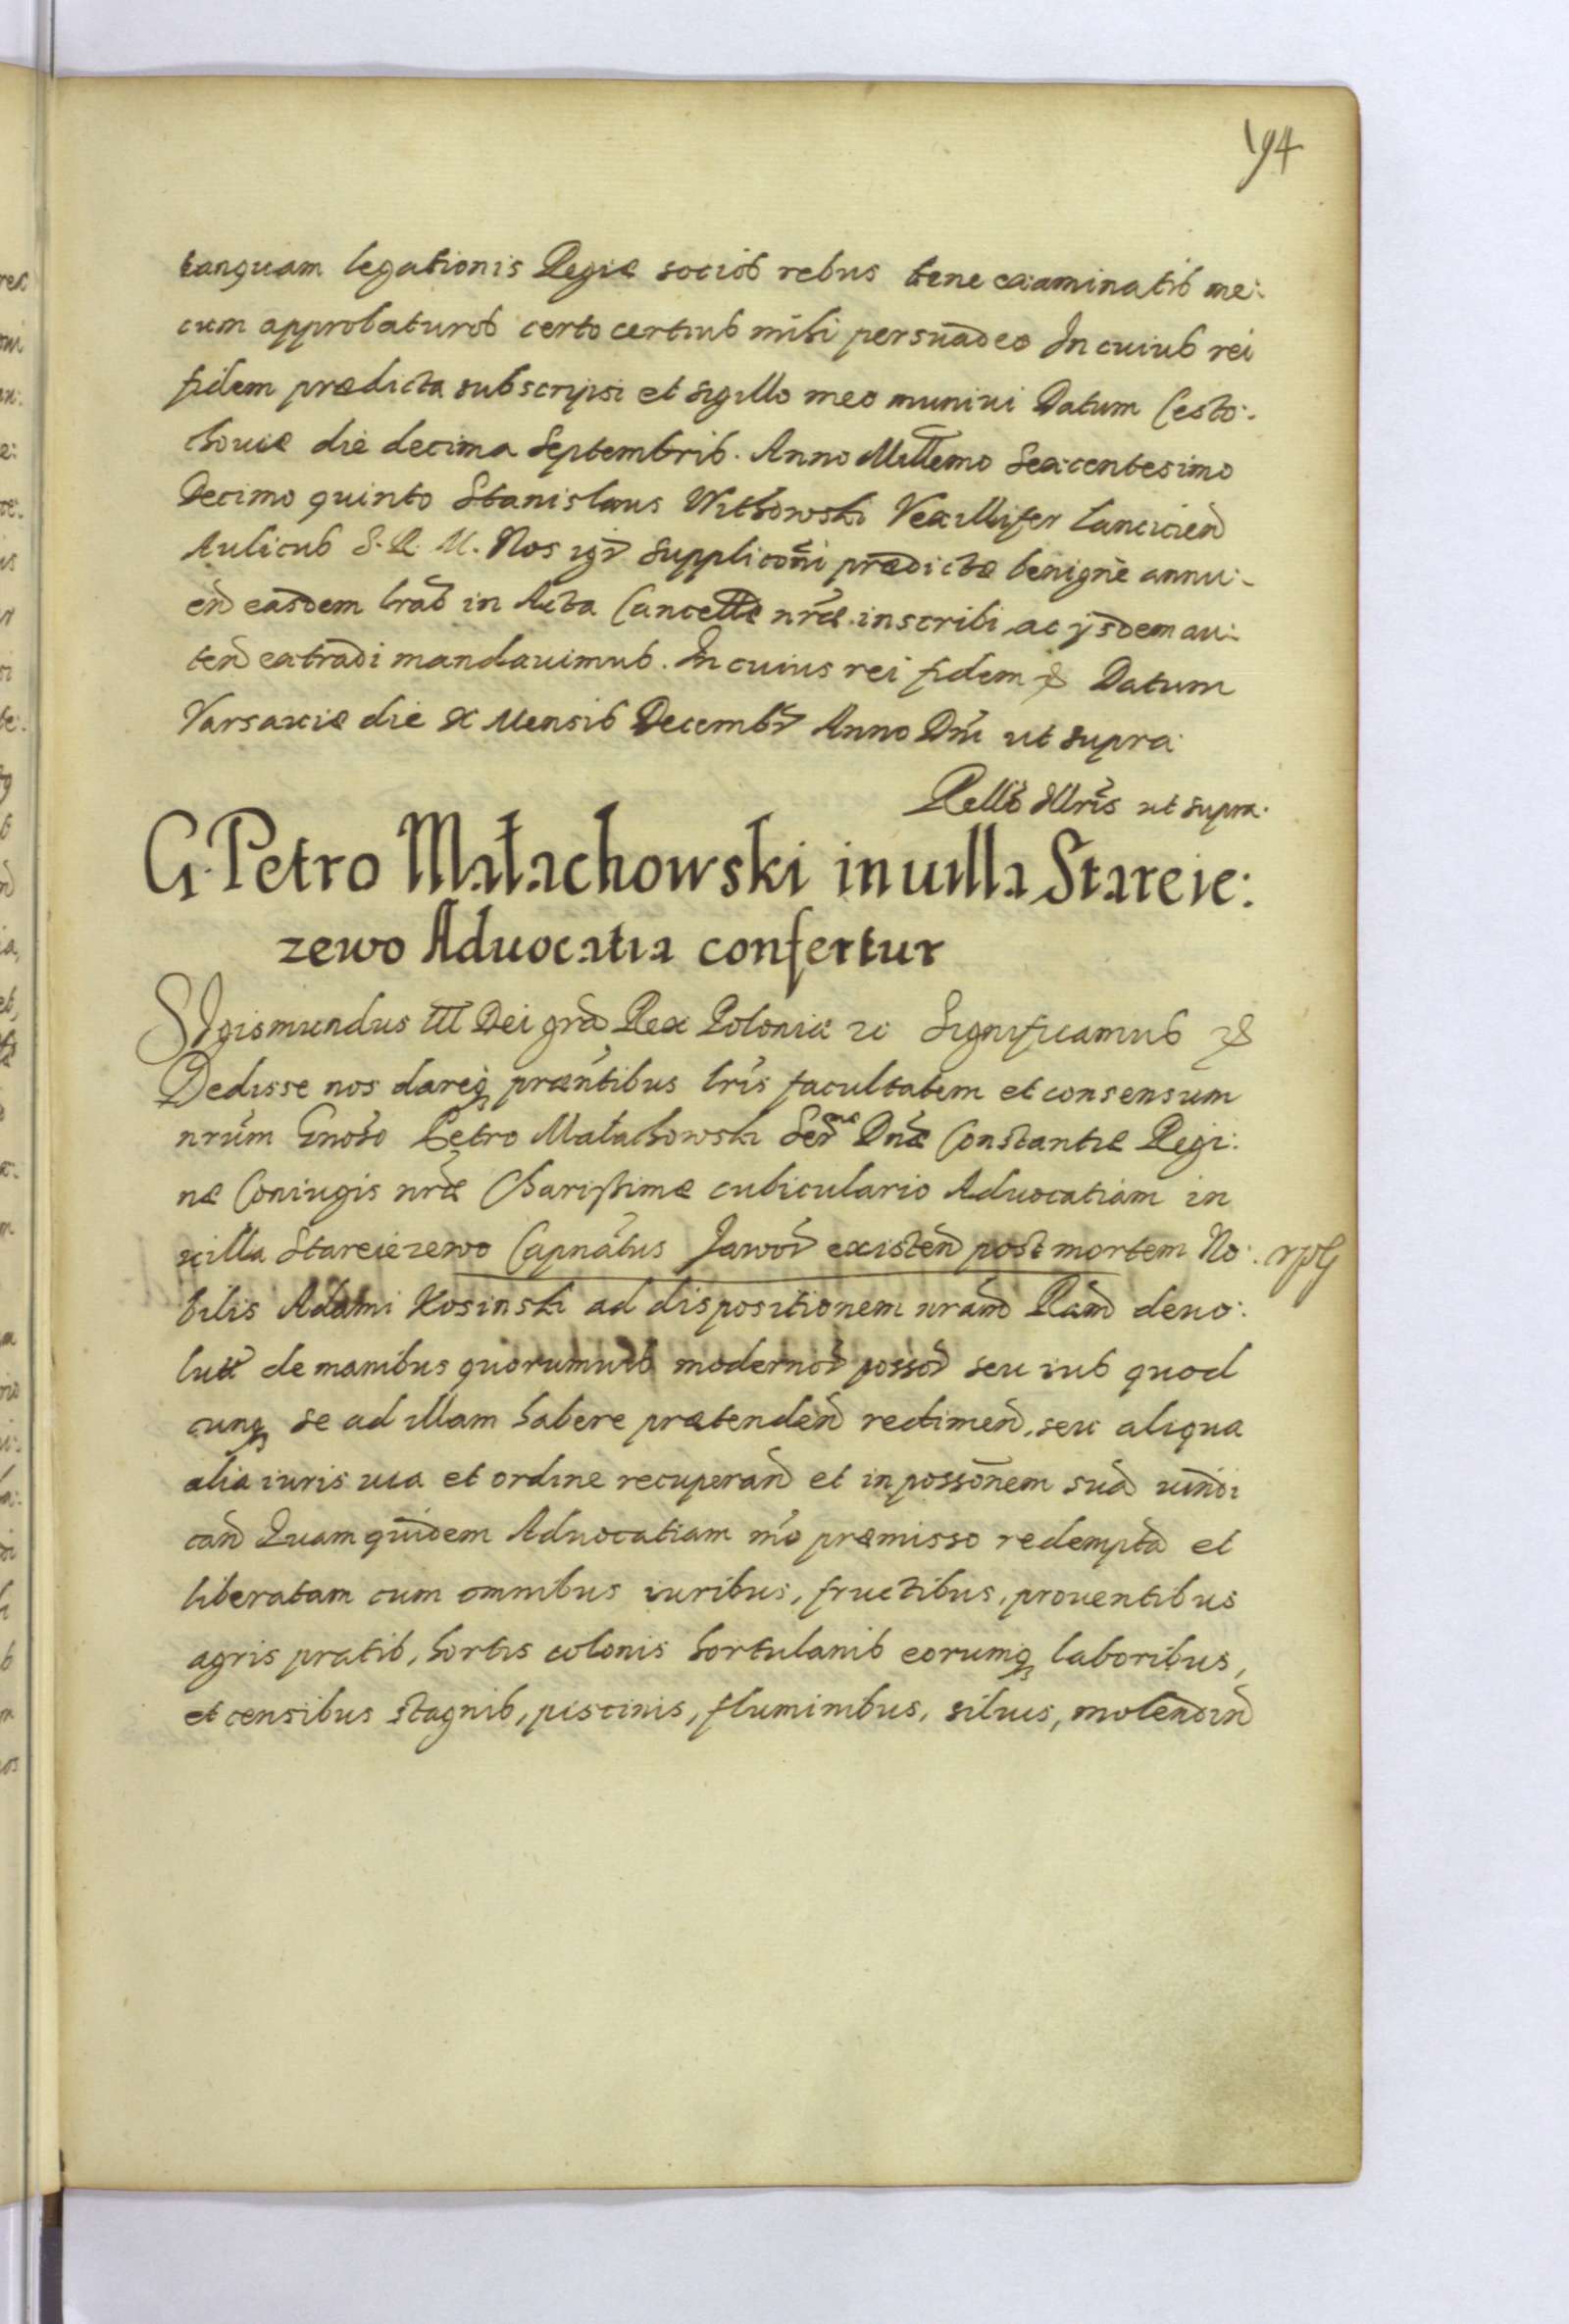 194
tanquam legationis Regiæ socios rebus bene examinatis me:
cum approbaturos certo certius mihi persuadeo In cuius rei
fidem prædicta subscripsi et sigillo meo muniui Datum Cesto:
chouiæ die decima Septembris. Anno Millemo Sexcentesimo
Decimo quinto Stanislaus Withowski Vexillifer Lancicień
Aulicus S. R. M. Nos igr suppliconi prædictæ benignè annu:
eñ easdem lras in Acta Cancellæ nræ inscribi ac ysdem au:
teñ extradi mandauimus. In cuius rei fidem & Datum
Varsauiæ die X Mensis Decembr Anno Dni ut supra
Rello Illris ut supra.
G. Petro Małachowski in uilla Stareie:
zewo Aduocatia confertur
SIgismundus III Dei gra Rex Poloniæ zc Significamus &
Dedisse nos dareq præntibus lris facultatem et consensum
nrum Gnoso Petro Małachowski Ser^mæ Dnæ Constantiæ Regi:
næ Coniugis nræ Charissimæ cubiculario Aduocatiam in
uilla Stareiezewo Capnatus Jawor existeñ post mortem No:
bilis Adami Kosinski ad dispositionem nram Ram deuo:
lut de manibus quorumuis modernor possor seu ius quod
cunq se ad illam habere prætendeñ redimeñ, seu aliqua
alia iuris uia et ordine recuperañ et in possonem sua uindi
cañ Quam quidem Aduocatiam mo præmisso redempta et
liberatam cum omnibus iuribus, fructibus, prouentibus
agris pratis, hortis colonis hortulanis eorumq laboribus,
et censibus stagnis, piscinis, fluminibus, siluis, molendiñ